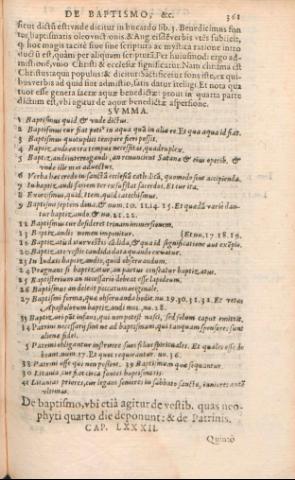 DE BAPTISMO, &c. 361
sicut dictū est: vnde dicitur in bucardo lib. 3. Benedicimus fon
tes baptismatis oleo vnctionis. & Aug
q hoc magis tacitè siue sine scriptura ac mystica ratione intro
ductū est, quàm per aliquam scripturā. Per huiusmodi ergo ad-
mistionē, vnio Christi & ecclesiæ significatur. Nam chrisma est
Christus: aqua populus:
bus verba ad quid fiat admistio, satis datur intelligi. Et nota quia
tuor esse genera sacræ aquæ benedictæ prout in quarta parte
dictum est, vbi agitur de aquæ benedictæ aspersione.
SVMMA.
1 Baptismus quid & vnde dictus.
2 Baptismus cur fiat potiꝰ in aqua quā in alio re. Et qua aqua id fiat.
3 Baptismus quotuplex tempore fieri possit.
4 Baptizandi extra tempus necessitas, quadruplex.
5 Baptizandi interrogandi, an renuncient Satanæ & eius operib. &
vnde ille mos aduectus.
6 Verba hæc credo in sanctā ecclesiā catholicā, quomodo sint accipienda.
7 In baptizandi faciem ter exsufflat sacerdos. Et cur ita.
8 Exorcismus, quid. Item, quid catechismus.
9 Baptismi septem dona, & num. 10. 11. 14. 15. Et quādā variè dan-
tur baptizando. & nu. 21. 22.
12 Baptismus cur desideret trinam immersionem.
13 Baptizandis nomen imponitur. [Et nu. 17. 18. 19.
16
20 Baptizatis vestis candida data quando exuatur.
23 In Iudæis baptizandis, quid obseruandum.
24 Prægnans si baptizatur, an partus censeatur baptizatus.
25 Baptisterium an necessariò debeat esse lapideum.
26 Baptismus an deleat peccatum originale.
27 Baptismi forma, quæ obseruanda hodie. nu. 29. 30. 31. 32. Et vetus
Apostolorum baptizandi mos, nu. 28.
33 Baptizandus
34 Patrini necessarij sint ne ad baptismum, qui tanquam sponsores, sunt
aliena fidei.
35 Patrini obligantur instruere suos filios spirituales. Et quales esse de
beant. num. 37. Et quot requirantur. nu. 36.
38 Patrini esse qui non possint. 39 Baptismum quæ sequantur.
40 Litania, cur fiat circa fontes baptismatis.
41 Litanias priores, cur legant seniores in sabbato sancto, iuniores autē
vltimas.
De baptismo, vbi etiā agitur de vestib. quas neo-
phyti quarto die deponunt: & de Patrinis.
CAP. LXXXII.
Quintò